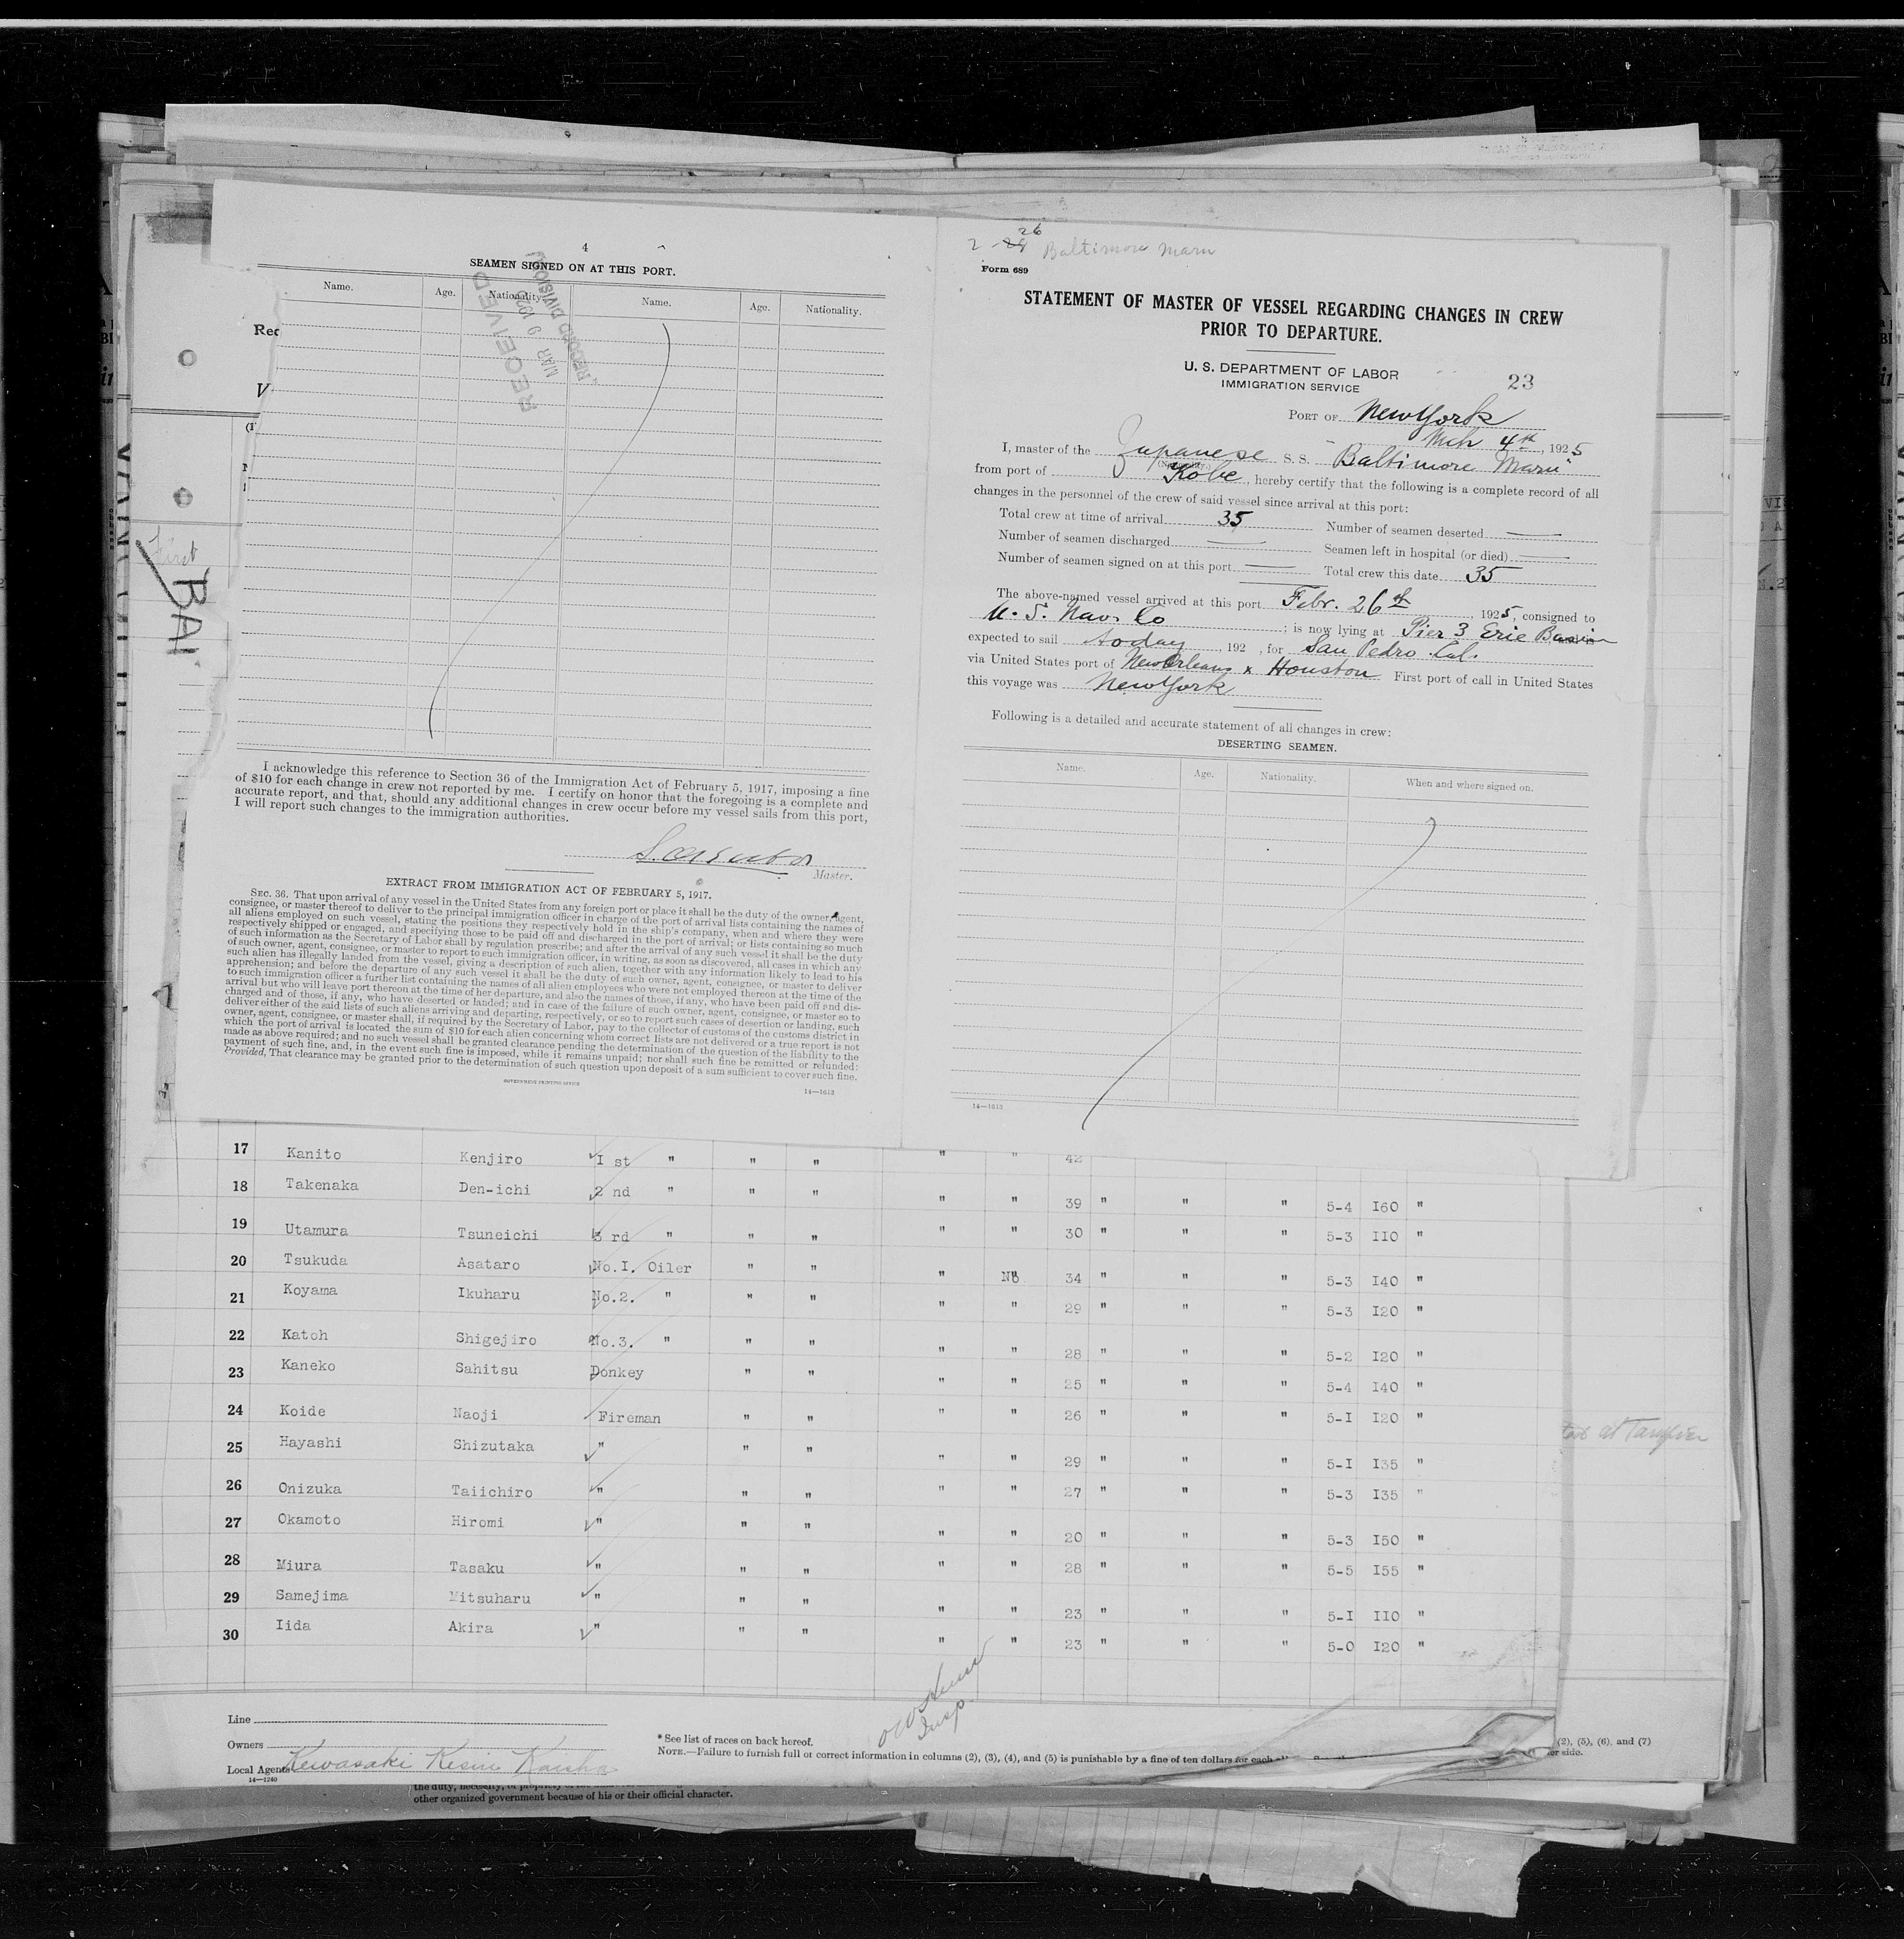 4
SEAMEN SIGNED ON AT THIS PORT.
Name. Age. Nationality. Name. Age. Nationality.
RECEIVED
MAR 9 1925
RECORD DIVISION
I acknowledge this reference to Section 36 of the Immigration Act of February 5, 1917, imposing a fine
of $10 for each change in crew not reported by me. I certify on honor that the foregoing is a complete and
accurate report, and that, should any additional changes in crew occur before my vessel sails from this port,
I will report such changes to the immigration authorities.
Master.
EXTRACT FROM IMMIGRATION ACT OF FEBRUARY 5, 1917.
SEC. 36. That upon arrival of any vessel in the United States from any foreign port or place it shall be the duty of the owner, agent,
consignee, or master thereof to deliver to the principal immigration officer in charge of the port of arrival lists containing the names of
all aliens employed on such vessel, stating the positions they respectively hold in the ship's company, when and where they were
respectively shipped or engaged, and specifying those to be paid off and discharged in the port of arrival; or lists containing so much
of such information as the Secretary of Labor shall by regulation prescribe; and after the arrival of any such vessel it shall be the duty
of such owner, agent, consignee, or master to report to such immigration officer, in writing, as soon as discovered, all cases in which any
such alien has illegally landed from the vessel, giving a description of such alien, together with any information likely to lead to his
apprehension; and before the departure of any such vessel it shall be the duty of such owner, agent, consignee, or master to deliver
to such immigration officer a further list containing the names of all alien employees who were not employed thereon at the time of the
arrival but who will leave port thereon at the time of her departure, and also the names of those, if any, who have been paid off and dis-
charged and of those, if any, who have deserted or landed; and in case of the failure of such owner, agent, consignee, or master so to
deliver either of the said lists of such aliens arriving and departing, respectively, or so to report such cases of desertion or landing, such
owner, agent, consignee, or master shall, if required by the Secretary of Labor, pay to the collector of customs of the customs district in
which the port of arrival is located the sum of $10 for each alien concerning whom correct lists are not delivered or a true report is not
made as above required; and no such vessel shall be granted clearance pending the determination of the question of the liability to the
payment of such fine, and, in the event such fine is imposed, while it remains unpaid; nor shall such fine be remitted or refunded:
Provided, That clearance may be granted prior to the determination of such question upon deposit of a sum sufficient to cover such fine.
GOVERNMENT PRINTING OFFICE
14—1613
26
2-28 Baltimore Maru
Form 689
STATEMENT OF MASTER OF VESSEL REGARDING CHANGES IN CREW
PRIOR TO DEPARTURE.
U. S. DEPARTMENT OF LABOR
IMMIGRATION SERVICE
23
PORT OF New York
Mch 4th, 1925
I, master of the Japanese S. S. "Baltimore Maru"
from port of Kobe, hereby certify that the following is a complete record of all
changes in the personnel of the crew of said vessel since arrival at this port:
Total crew at time of arrival 35 Number of seamen deserted —
Number of seamen discharged — Seamen left in hospital (or died) —
Number of seamen signed on at this port — Total crew this date 35
The above-named vessel arrived at this port Febr. 26th, 1925, consigned to
U. S. Nav. Co; is now lying at Pier 3 Erie Basin
expected to sail today, 192 , for San Pedro Cal.
via United States port of New Orleans x Houston First port of call in United States
this voyage was New York
Following is a detailed and accurate statement of all changes in crew:
DESERTING SEAMEN.
Name. Age. Nationality. When and where signed on.
14—1613
Rec
V
first
BAL
17 Kanito Kenjiro I st " " " " " 42
18 Takenaka Den-ichi 2 nd " " " " " 39 " " " 5-4 I60 "
19 Utamura Tsuneichi 3 rd " " " " " 30 " " " 5-3 II0 "
20 Tsukuda Asataro No.I. Oiler " " " No 34 " " " 5-3 I40 "
21 Koyama Ikuharu No.2. " " " " " 29 " " " 5-3 I20 "
22 Katoh Shigejiro No.3. " " " " " 28 " " " 5-2 I20 "
23 Kaneko Sahitsu Donkey " " " " 25 " " " 5-4 I40 "
24 Koide Naoji Fireman " " " " 26 " " " 5-I I20 "
25 Hayashi Shizutaka " " " " " 29 " " " 5-I I35 "
26 Onizuka Taiichiro " " " " " 27 " " " 5-3 I35 "
27 Okamoto Hiromi " " " " " 20 " " " 5-3 I50 "
28 Miura Tasaku " " " " " 28 " " " 5-5 I55 "
29 Samejima Mitsuharu " " " " " 23 " " " 5-I II0 "
30 Iida Akira " " " " " 23 " " " 5-0 I20 "
Insp.
Line
Owners
Local Agents Kewasaki Kisen Kaisha
14—1240
* See list of races on back hereof.
NOTE.—Failure to furnish full or correct information in columns (2), (3), (4), and (5) is punishable by a fine of ten dollars for each
(2), (5), (6), and (7)
er side.
other organized government because of his or their official character.